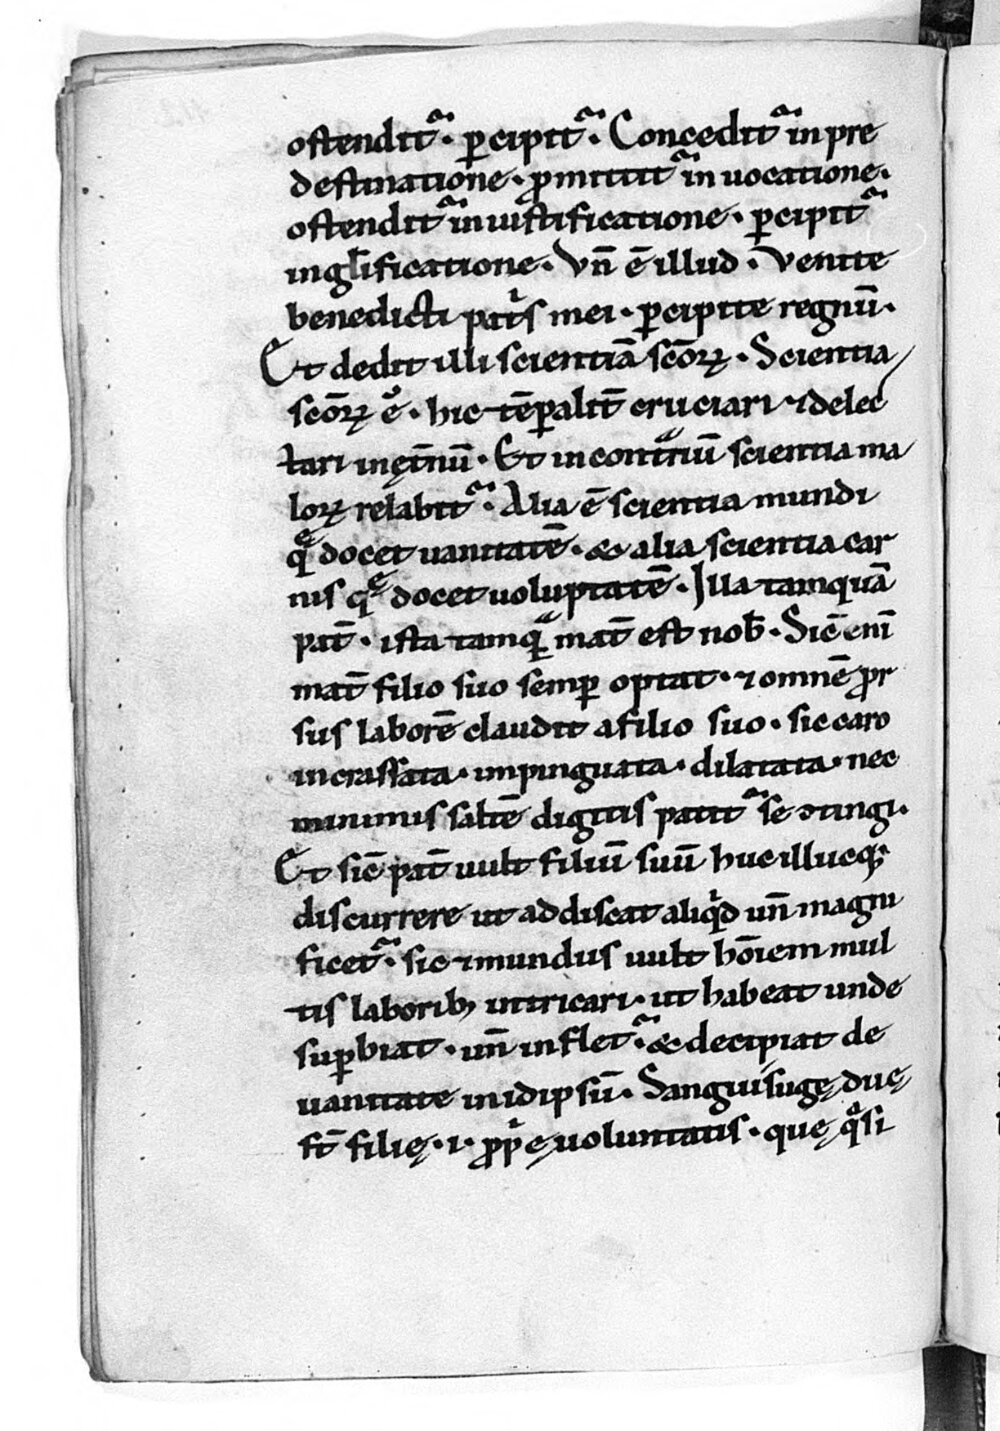 ostendit᷑. ꝑcipit᷑. Concedit᷑ in pre
destinatione. ꝓmittit᷑ in uocatione.
ostendit᷑ in iustificatione. ꝑcipit᷑
in gl̄ificatione. Vn̄ ē illud. Venite
benedicti patͥs mei. ꝑcipite regnū.
Et dedit illi scientiā sc̄oꝝ. Scientia
sc̄oꝝ ē. hic tēꝑalit̄ cruciari ⁊ delec
tari in ęt̄nū. Et in contᷓriū scientia ma
loꝝ relabit᷑. Alia ē scientia mundi
qͤ docet uanitatē. & alia scientia car
nis qͤ docet uoluptatē. Illa tamquā
pat̄. ista tamqᷓ mat̄ est nob̄. Sic̄ eni̅
mat̄ filio suo semꝑ optat. ⁊ omnē ꝓr
sus laborē claudit a filio suo. sic caro
incrassata. inpinguata. dilatata. nec
minimis saltē digitis patit᷑ se ꝯtingi.
Et sic̄ pat̄ uult filiū suū huc illucq;
discurrere ut addiscat aliqͥd un̄ magni
ficet᷑. sic ⁊ mundus uult hōiem mul
tis laborib; intricari. ut habeat unde
suꝑbiat. un̄ inflet᷑. & decipiat de
uanitate in idipsū. Sanguisugę duę
st̄ filię. i. ꝓpͥę uoluntatis. quę qᷓsi